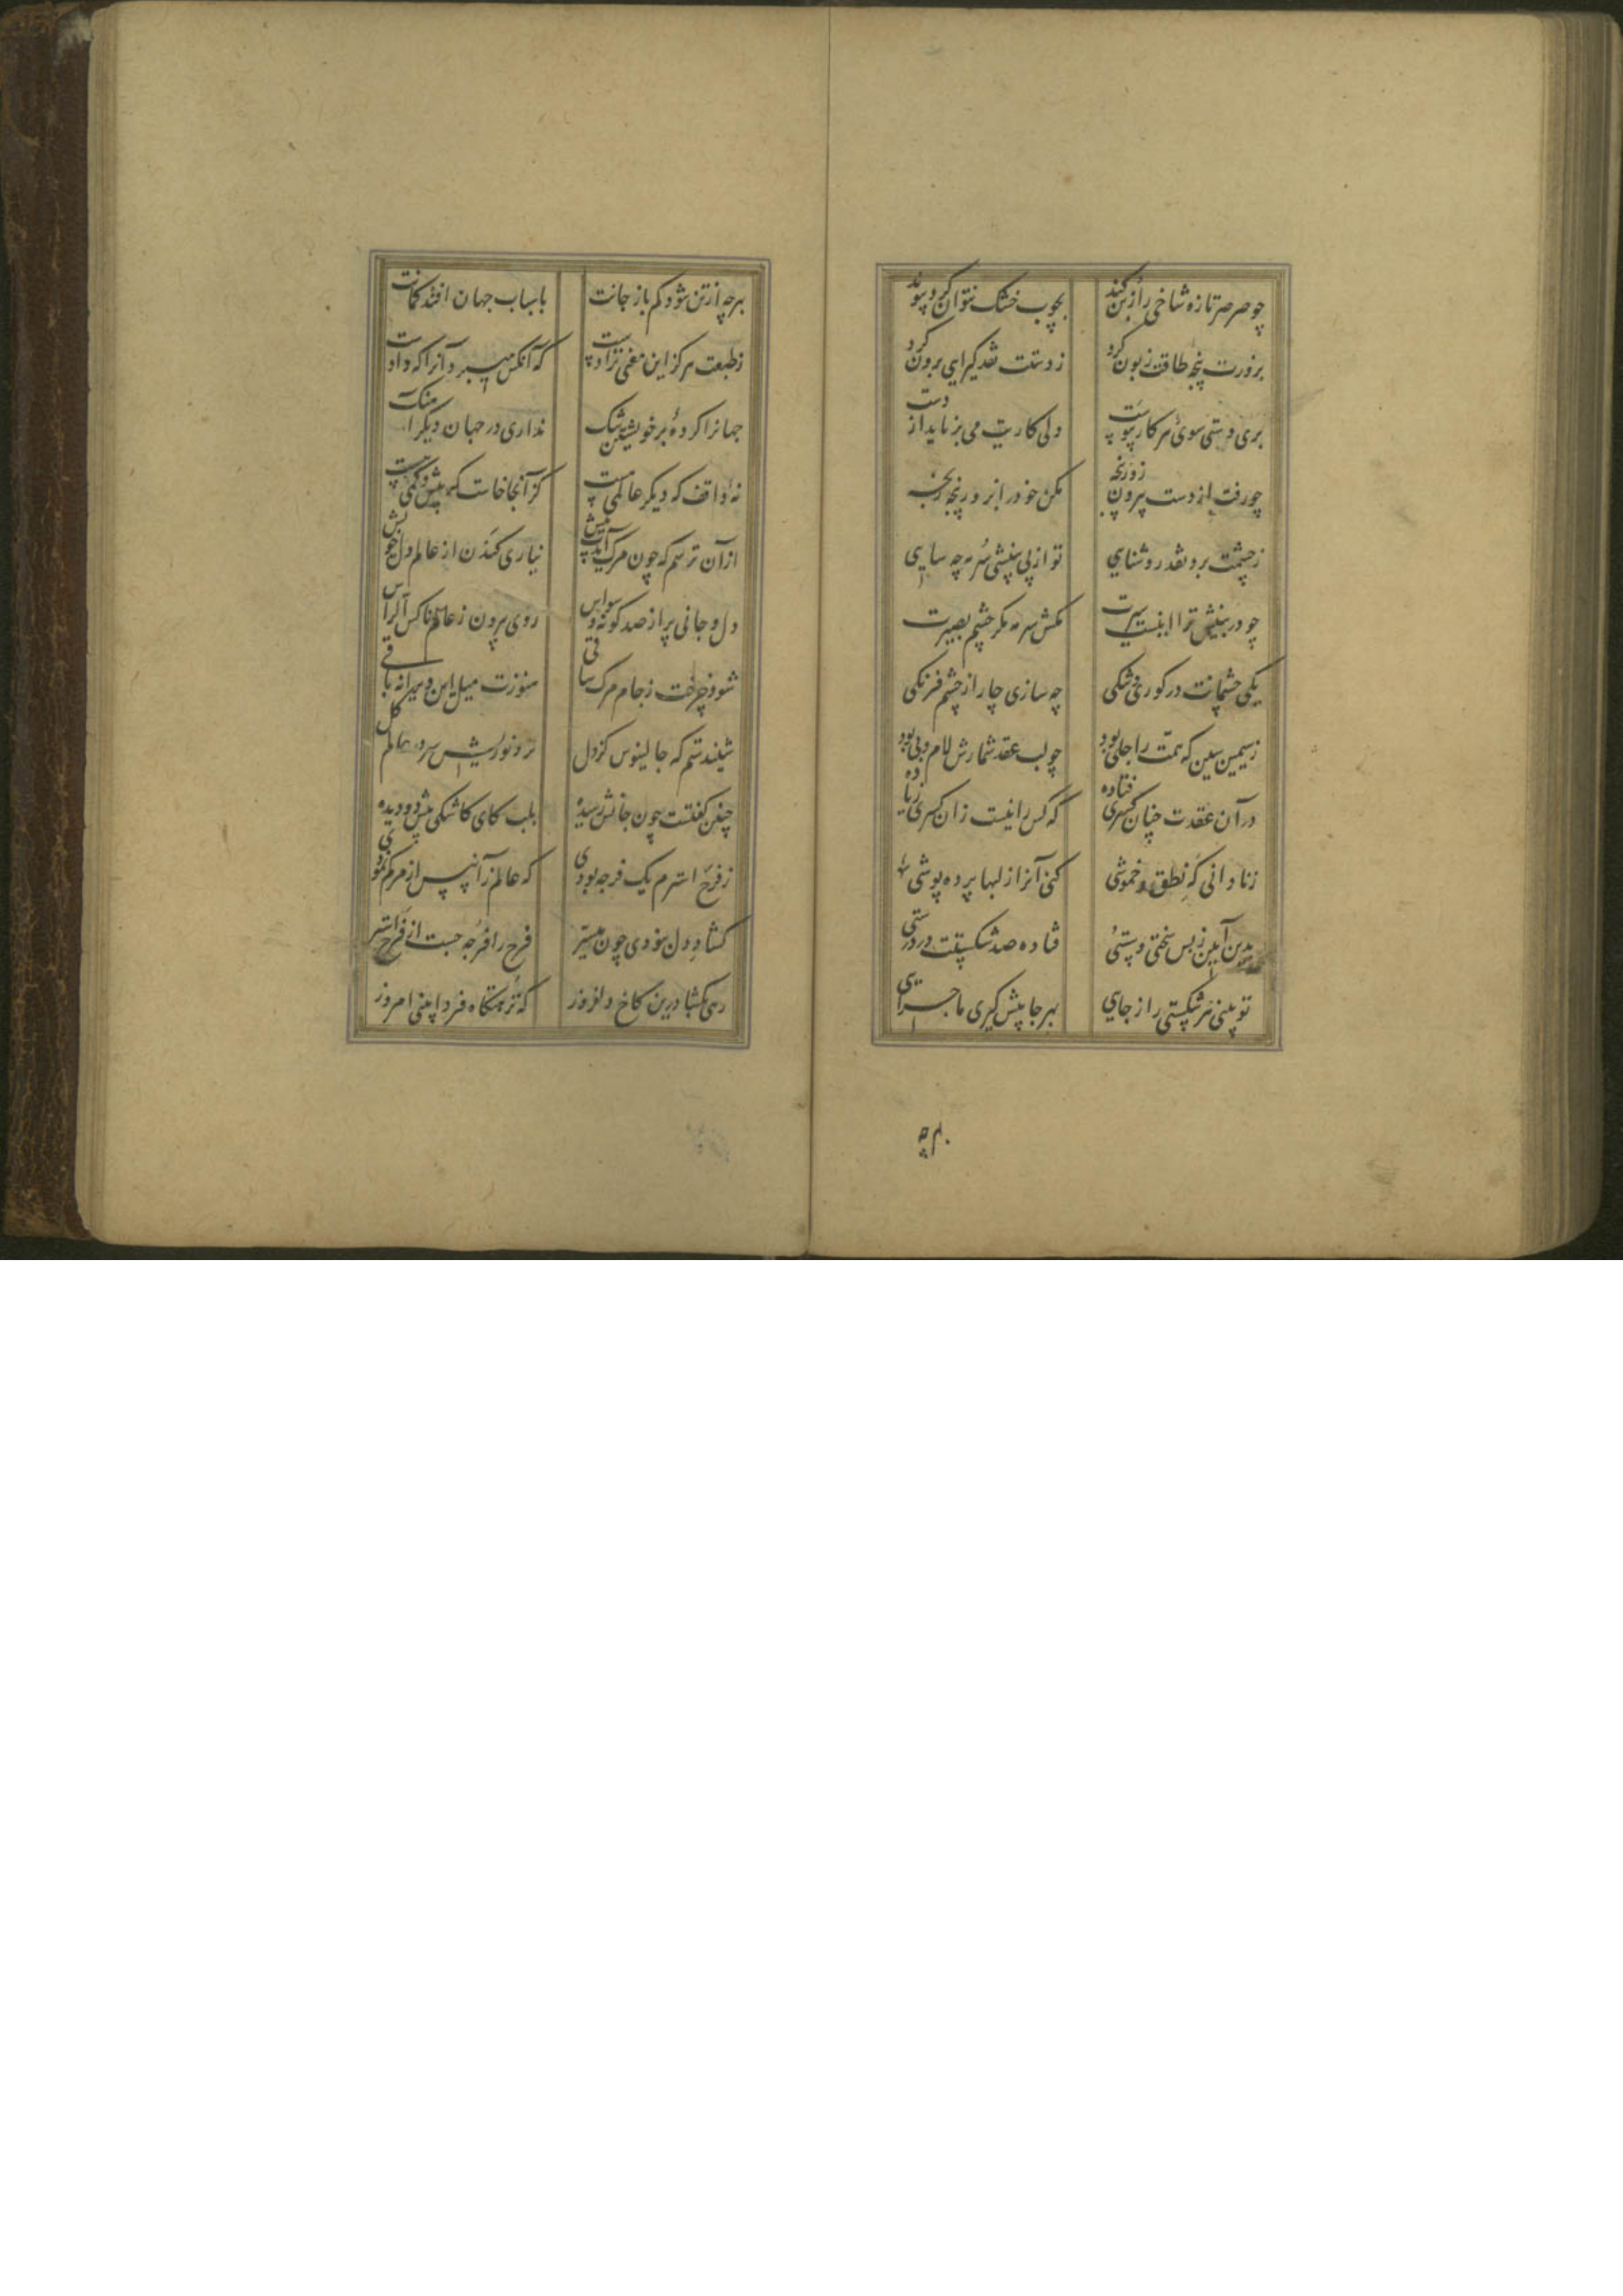 چو صرصر تازه شاخی را ز بن کند بچوب خشک نتوان کرد پیوند
بزورت پنجه طاقت زبون کرد ز دستت نقد گیرای برون کرد
بری دستی سوی هر کار پیوست ولی کاریت می برناید از دست
چو رفت از دست بیرون زور پنجه مکن خود را بزور پنجه رنجه
ز چشمت برد نقد روشنایی تو از پی بینشی سرمه چه سایی
چو در بینش ترا اینست سیرت مکش سرمه مگر چشم بصیرت
یکی چشمانت در کوری و شکی چه سازی چار از چشم فرنگی
ز سیمین سین که همت را جلی بود چو لب عقد شمارش لام و بی بود
در آن عقدت چنان کسری فتاده که کس را نیست زان کسری زیاده
ز نادانی که نطق و خموشی کنی آنرا ز لبها پرده پوشی
بدین آیین ز بس سختی و سستی فتاده صد شکستت در درستی
تو بینی هر شکستی را ز جایی بهر جا پیش گیری ماجرایی
بهرچه
بهرچه از تن شود کم باز جانت باسباب جهان افتد کمانت
ز طبعت هرگز این معنی نزادست که آنکس میبرد آنرا که دادست
جهانرا کرده‌ٔ بر خویشتن تنگ نداری در جهان دیگر آهنگ
نهٔ واقف که دیگر عالمی هست کز آنجا خاست هر بیش و کمی هست
از آن ترسم که چون مرگ آیدت پیش نیاری کندن از عالم دل خویش
دل و جانی پر از صد گونه وسواس روی بیرون ز عالم ناکس الراس
شود چرخت ز جام مرگ ساقی هنوزت میل این ویرانه باقی
شنیدستم که جالینوس کز دل
چنین گفتست چون جانش رسیده بلب کای کاشکی بیش دو دیده
ز فرج استرم یک فرجه بودی که عالم زان پس از مرگم نمودی
گشاد دل نبودی چون میسر فرح را فرجه جست از فرج استر
رهی بگشا درین کاخ دلفروز که نزهتگاه فردا بینی امروز